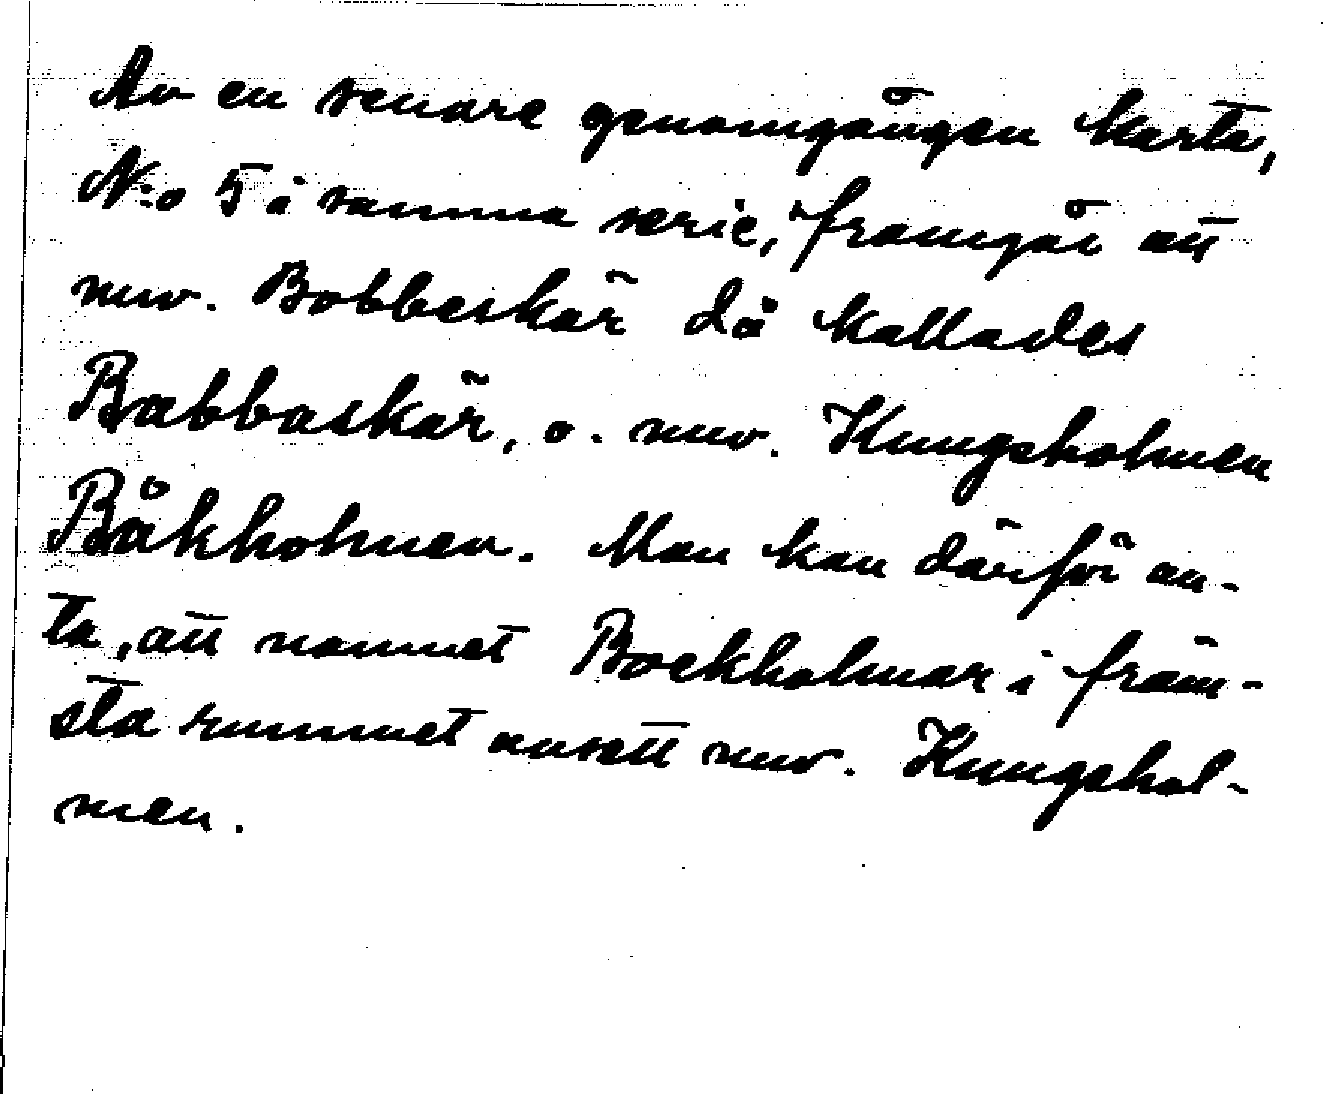 Av en senare genomgången karta,
N:o 5 i samma serie, framgår att
nuv. Bobbeskär då kallades
Babbaskär, o. nuv. Kungsholmen
Båkholmen. Man kan därför an-
ta, att namnet Bockholmar i främ-
sta rummet avsett nuv. Kungshol-
men.